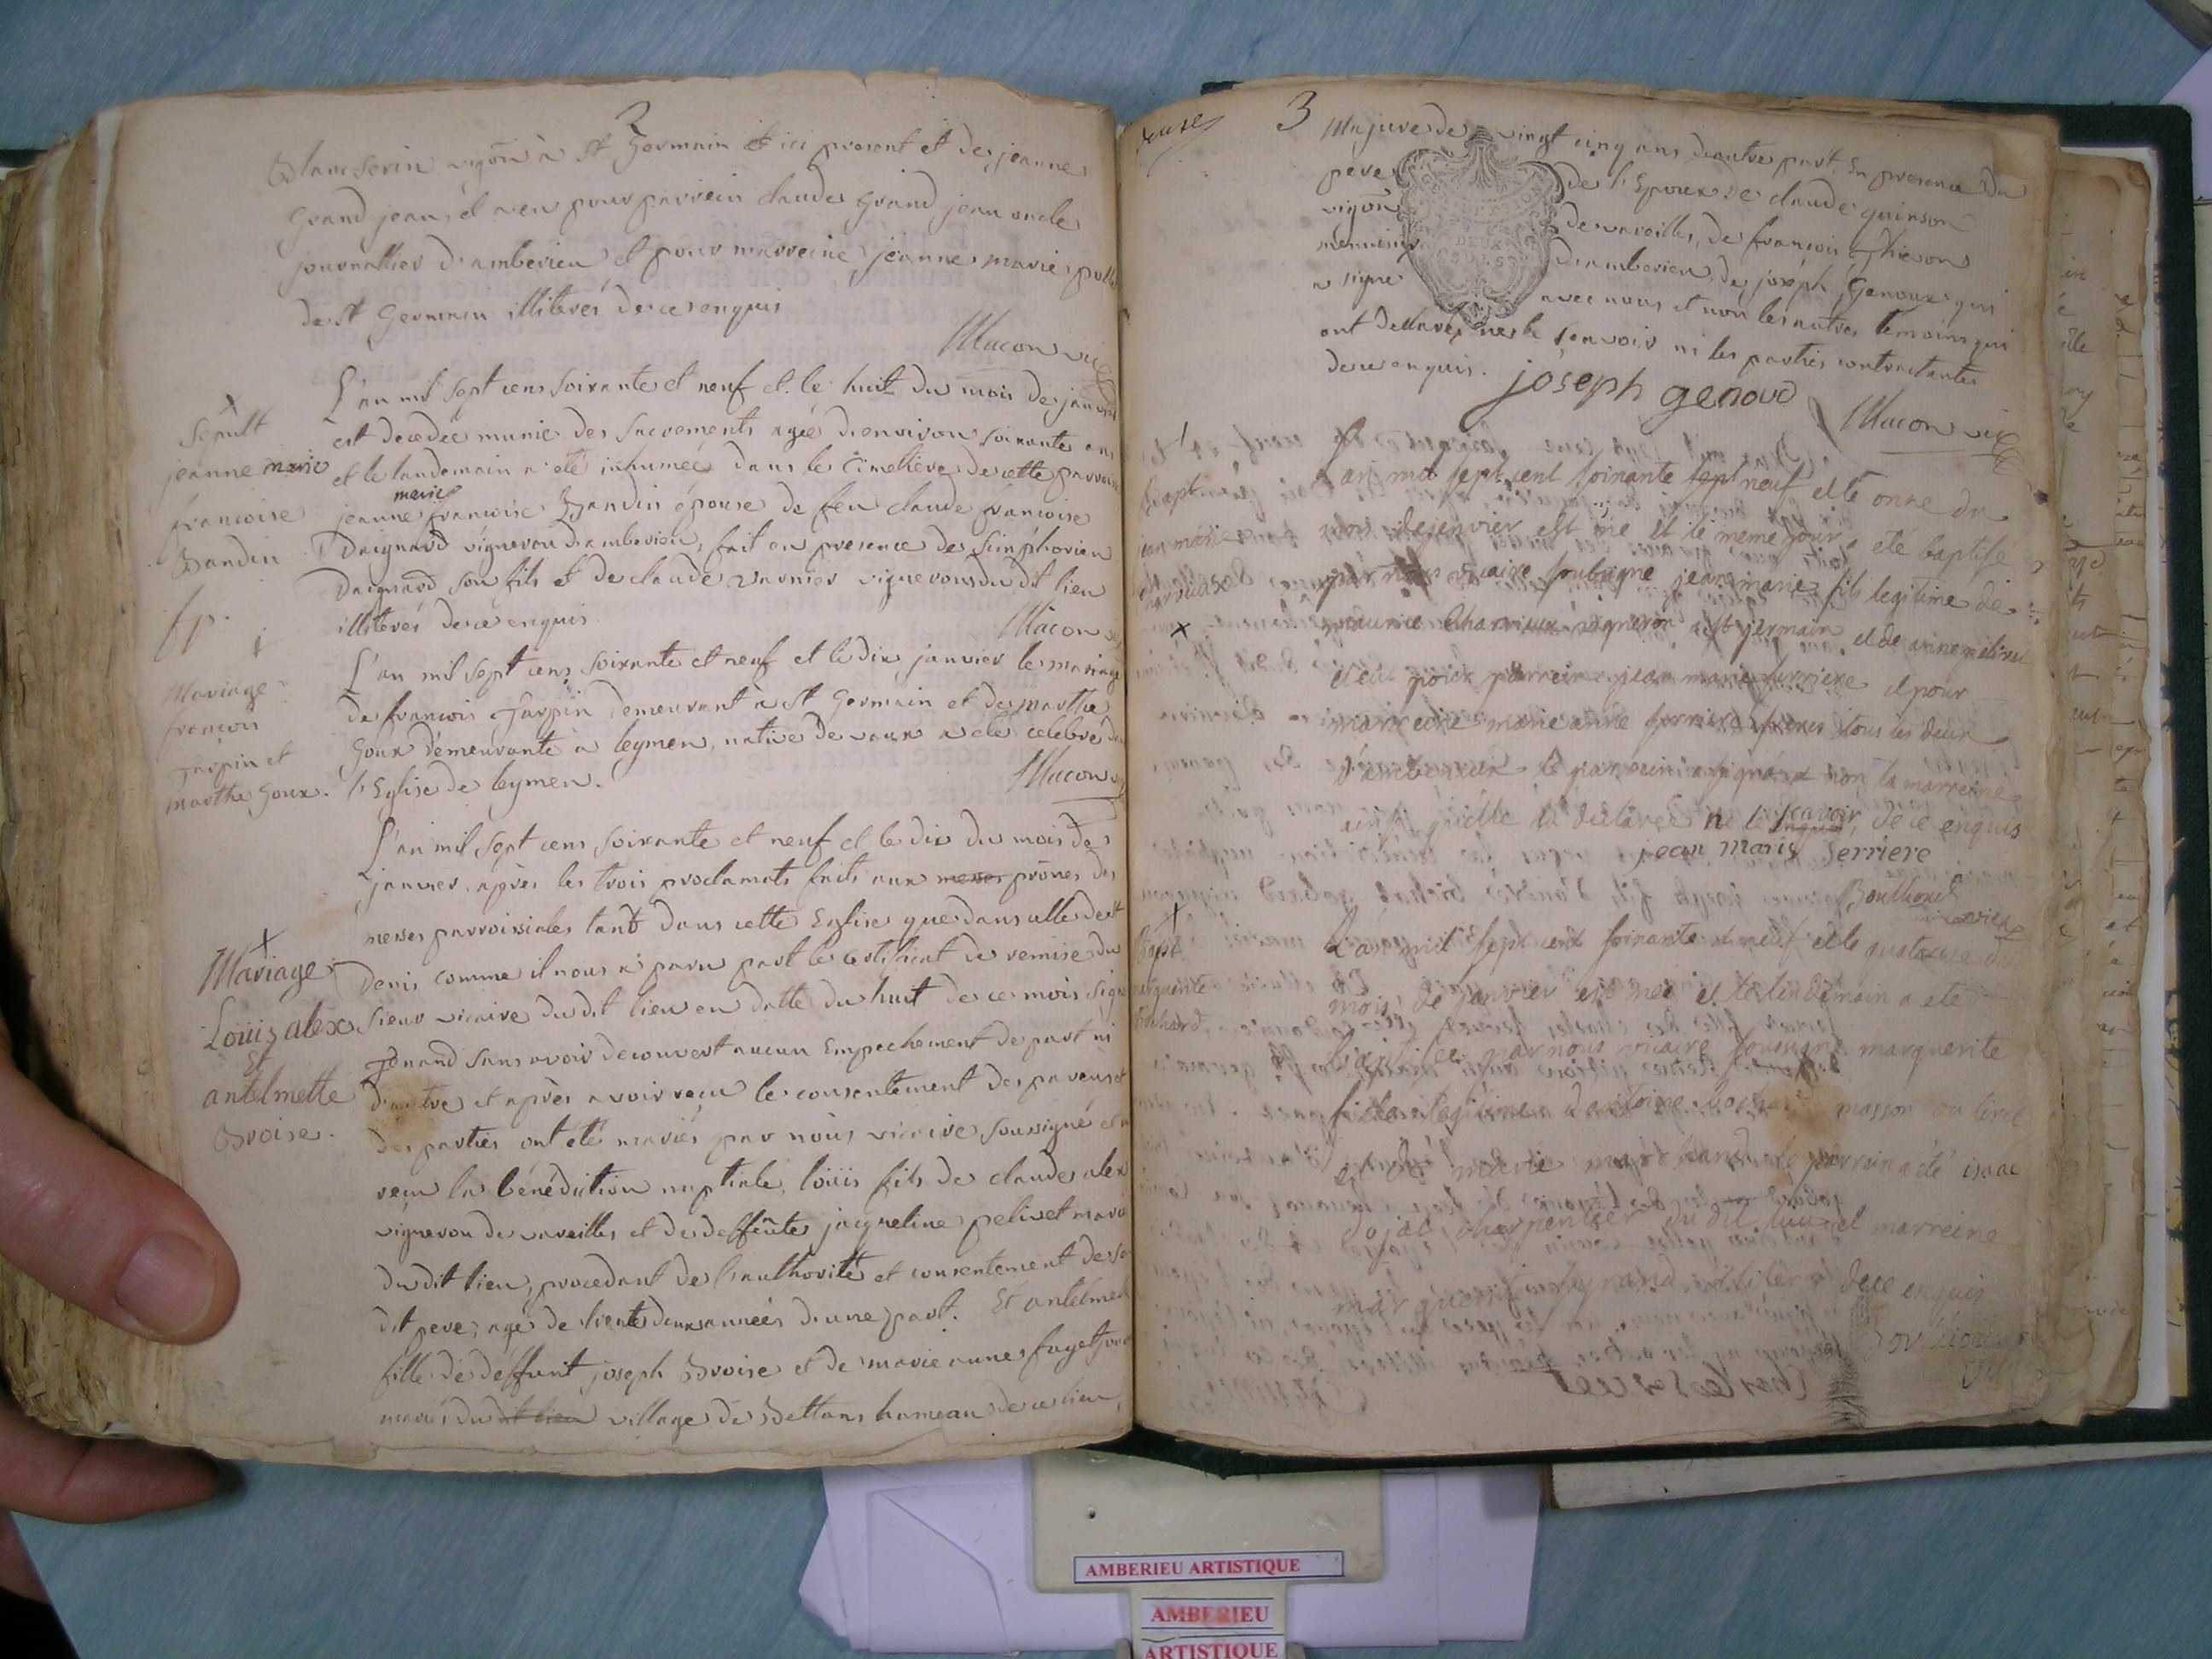 2
vigñ à St Germain et ici present et de jeanne
Grand jean, et a eu pour parrein claude Grand jean oncle
journallier d'amberieu et pour marreine jeanne marie
de St Germain illiterés de ce enquis
Macon vic
Sepult
jeanne marie
francoise
Bandin
L'an mil sept cens soixante et neuf et le huit du mois de janvier
est decedée munie des sacrements agée d'environ soixante ans
et le landemain a été inhumée dans le Cimetiere de cette parroisse
marie
jeanne francoise Bandin épouse de feu claude francoise
Daignard vigneron d'amberieu, fait en presence de Simphorien
Daignard son fils et de claude Varnier vignerons du dit lieu
illiterés de ce enquis
Macon vic
Mariage
francois
Jarpin et
marthe Goux.
L'an mil sept cens soixante et neuf et le dix janvier le mariage
de francois Jarpin demeurant à St Germain et de marthe
Goux demeurante à leymen, native de vaux a été celebré dans
l'Eglise de leymen.
Macon vic
Mariage
Louis alex
Et
antelmette
Broise.
L'an mil sept cens soixante et neuf et le dix du mois de
janvier, après les trois proclamats faits aux messes prônes des
messes parroissiales tant dans cette Eglise que dans celle de St
Denis comme il nous a paru part le certificat de remise du
sieur vicaire du dit lieu en datte du huit de ce mois signé
Jonand sans avoir decouvert aucun Empechement de part ni
d'autre et après avoir reçu le consentement des parens et
des parties ont eté mariés par nous vicaire soussigné et
reçu la bénédiction nuptiale, loüis fils de claude alex
vigneron de vareilles et de deffunte jacqueline pelivet mariés
du dit lieu, procedant de l'authorité et consentement de son
dit pere, agé de trente deux années d'une part. Et antelmette
fille de deffunt joseph Broise et de marie anne
mariés du dit lieu village de Bettans hameau de ce lieu,
3
Majeure de vingt cinq ans d'autre part. En presence du
pere de l'Epoux de claude quinson
vigñ de vareilles, de francois Thievon
menuisier d'amberieu, de joseph Genoux qui
a signé avec nous et non les autres temoins qui
ont declarés ne le sçavoir ni les parties contractantes
de ce enquis.
joseph genoud
Macon vic
Bapt
jean marie
L'an mil sept cent soixante sept neuf et le onze du
mois de janvier est né et le meme jour a eté baptisé
par nous vicaire soussigné jean marie fils legitime de
maurice Charvieux vigneron a St germain et de anne
et eu pour parrein jean marie ferriere et pour
marreine marie anne ferriere freres tous les deux
d'amberieux le parrein a signé et non la marreine
ainsi qu'elle la declarée ne le scavoir, de ce enquis
jean marie ferriere
Bouthonet
vicaire
Bapt
L'an mil sept cent soixante et neuf et le quatorze du
mois de janvier est née et le lendemain a eté
baptisée par nous vicaire soussigné marguerite
fille legitime d'antoine masson
et de marie le parrein a été isaac
charpentier du dit lieu et marreine
marguerite illiterés de ce enquis
AMBERIEU ARTISTIQUE
AMBERIEU
ARTISTIQUE